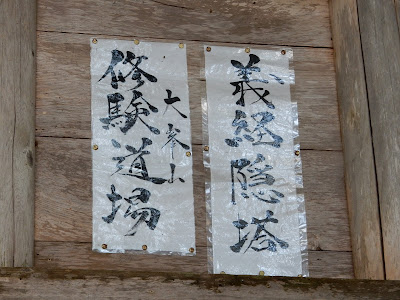 義経隠塔
大峯山
修験道場